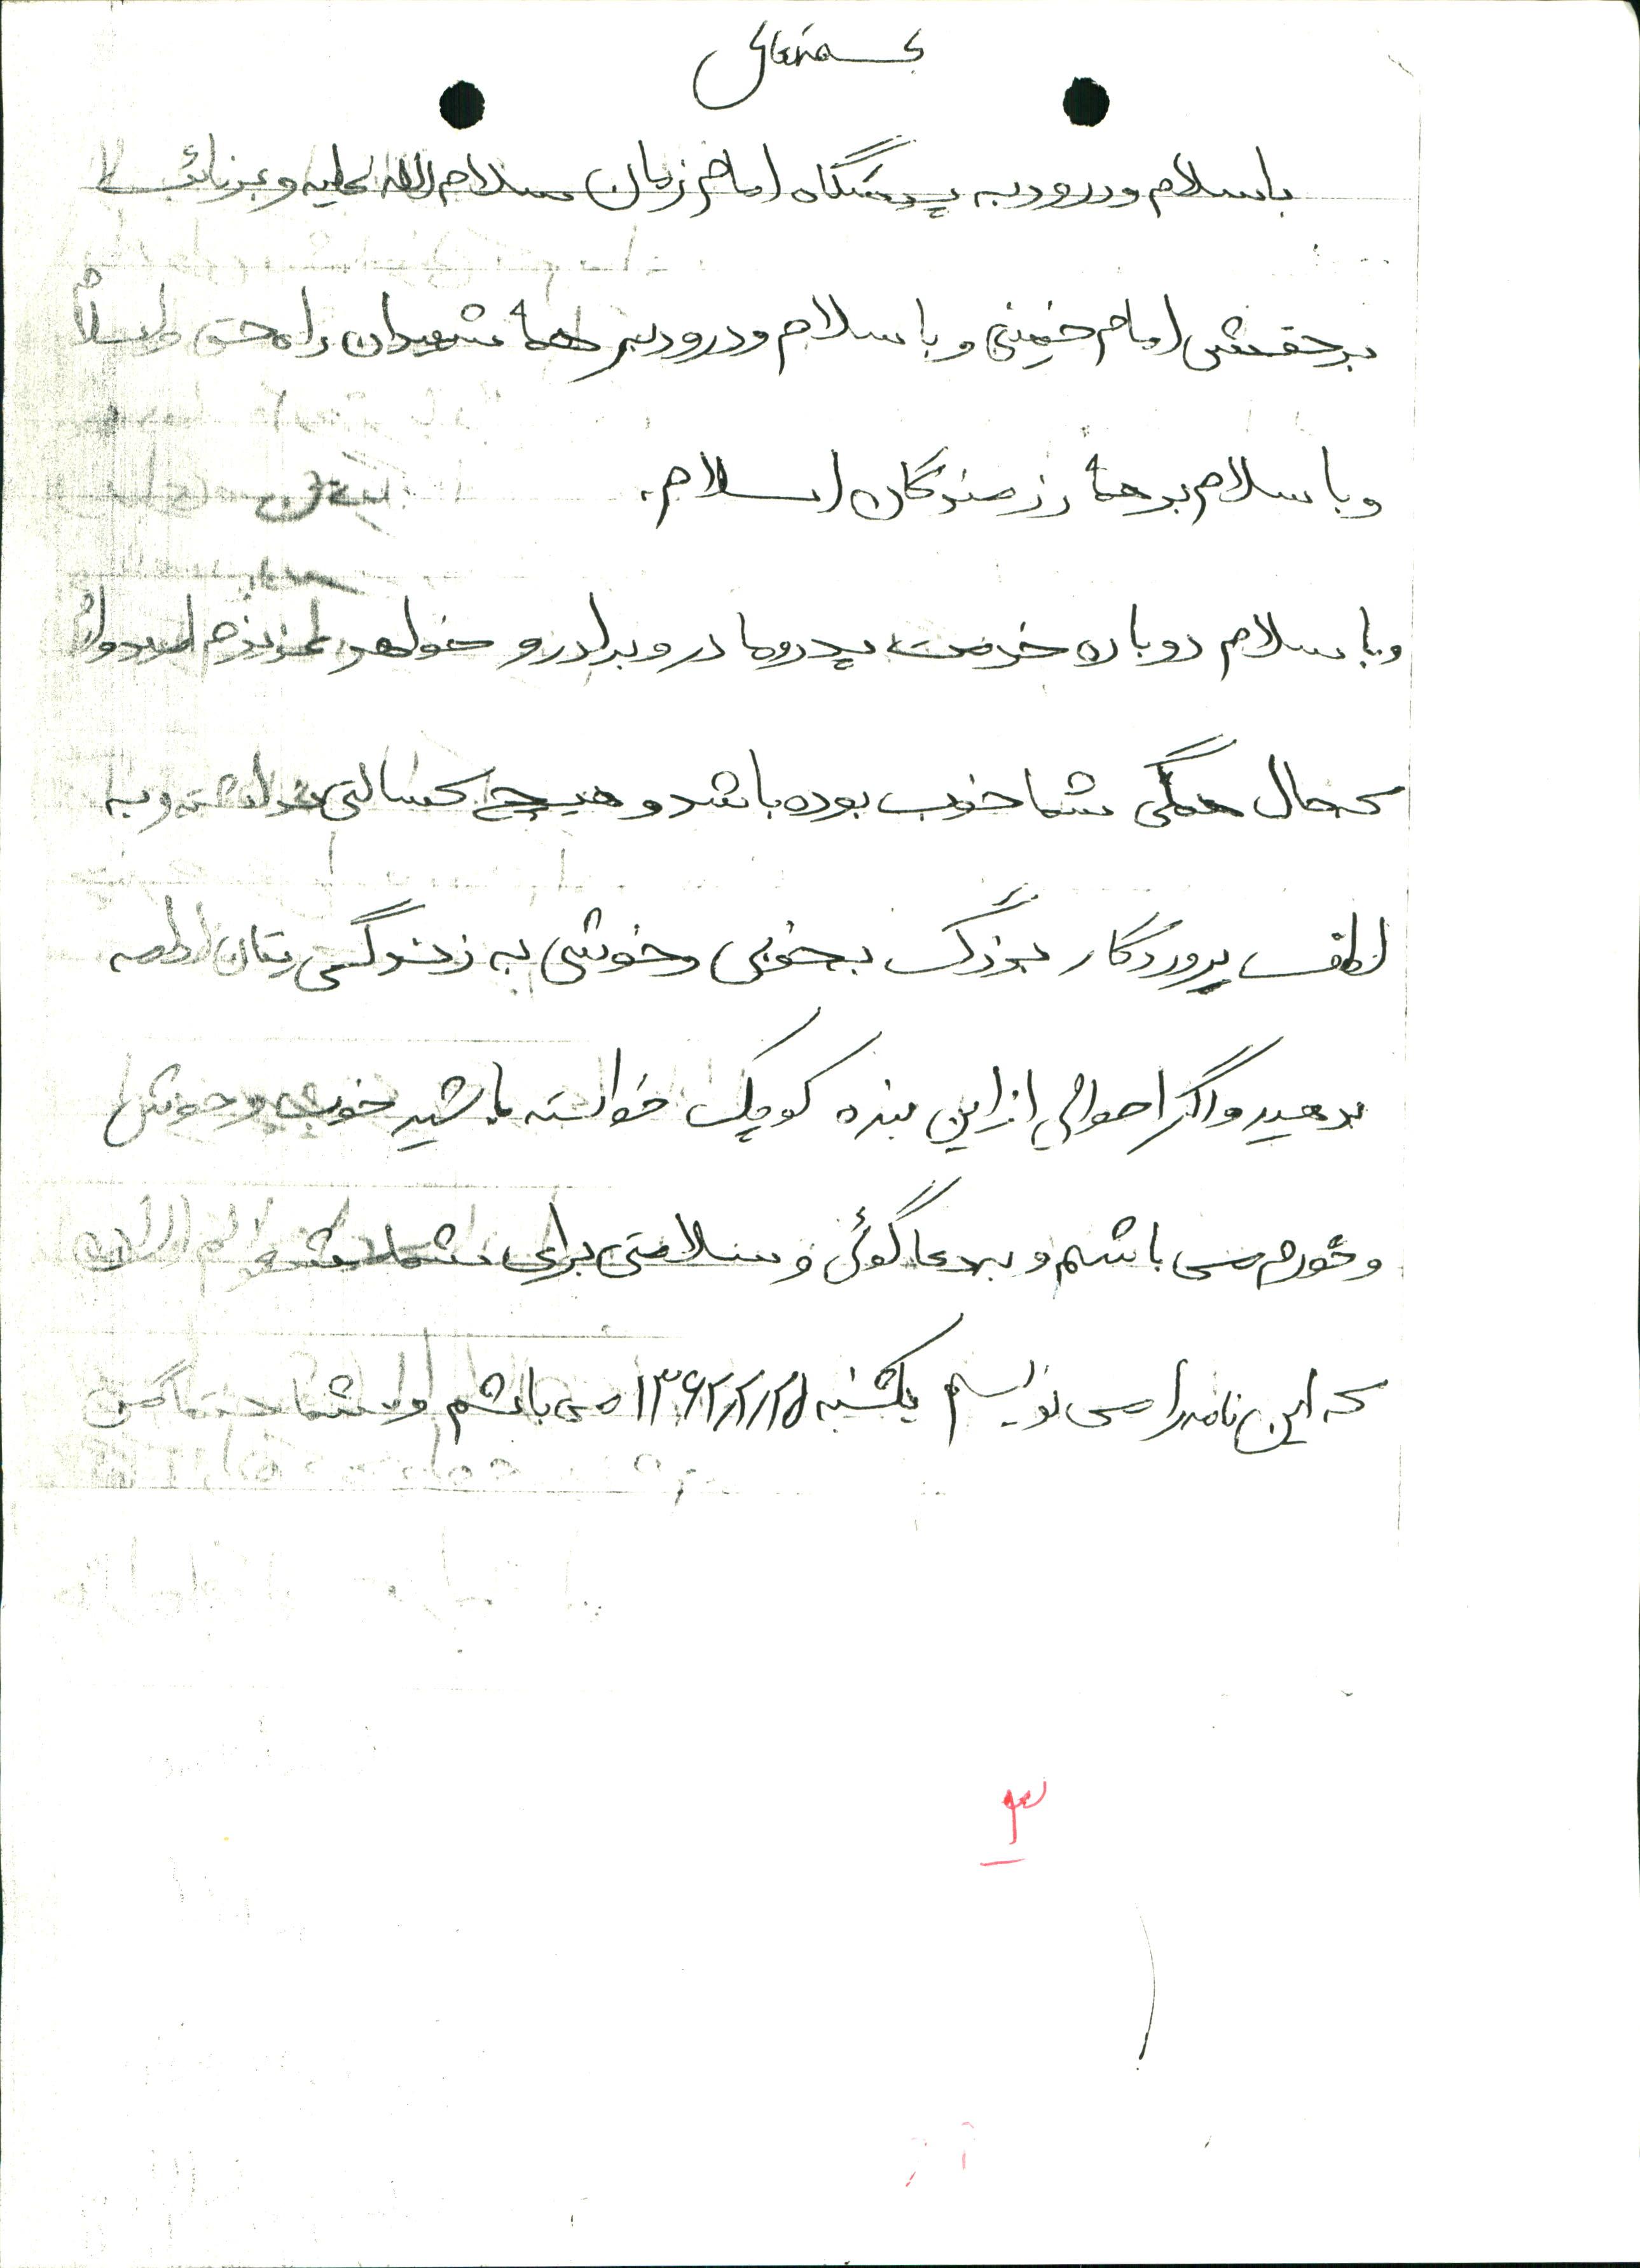 بسمه تعالی
با سلام و درود به پیشگاه امام زمان سلام الله علیه و بر نائب
بر حقش امام خمینی و با سلام و درود بر همهٔ شهیدان راه حق و اسلام
و با سلام بر همهٔ رزمندگان اسلام.
و با سلام دوباره خدمت پدر و مادر و برادر و خواهر عزیزم امیدوارم
که حال همگی شما خوب بوده باشد و هیچ کسالتی نداشته و به
لطف پروردگار بزرگ بخوبی و خوشی به زندگی تان ادامه
بدهید و اگر احوالی از این بنده کوچک خواسته باشید خوب و خوش
و خورم می باشم و بدعا گوئی و سلامتی برای شما
که این نامه را می نویسم یکشنبه ۱۳۶۲/۲/۲۵ می باشم و شما حتما
۳